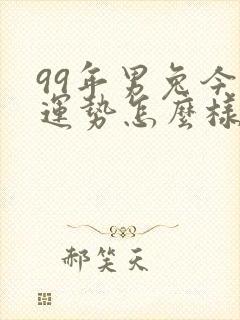 99年男兔今
運勢怎麼樣
郝笑天